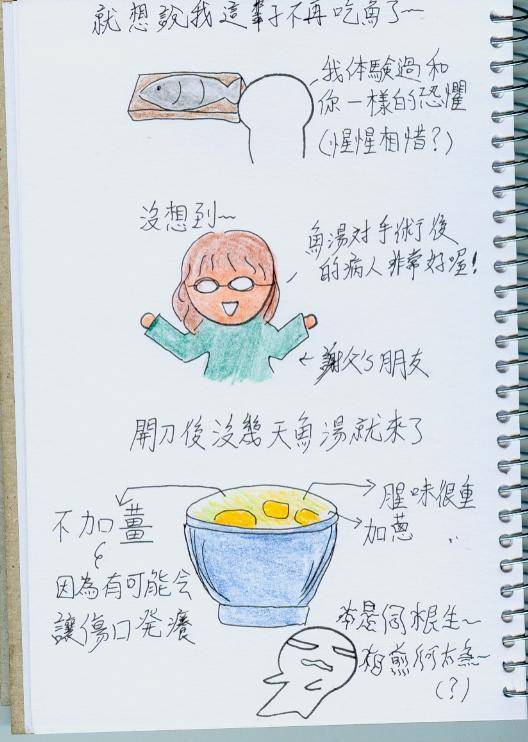 就想說我這輩子不再吃魚了~
我体験過和
你一樣的恐懼
(惺惺相惜?)
沒想到~
魚湯対手術後
的病人非常好喔!
←謝父's朋友
開刀後沒幾天魚湯就來了
不加薑
因為有可能会
讓傷口発癢
腥味很重
加蔥
本是同根生~
相煎何太急~
(?)